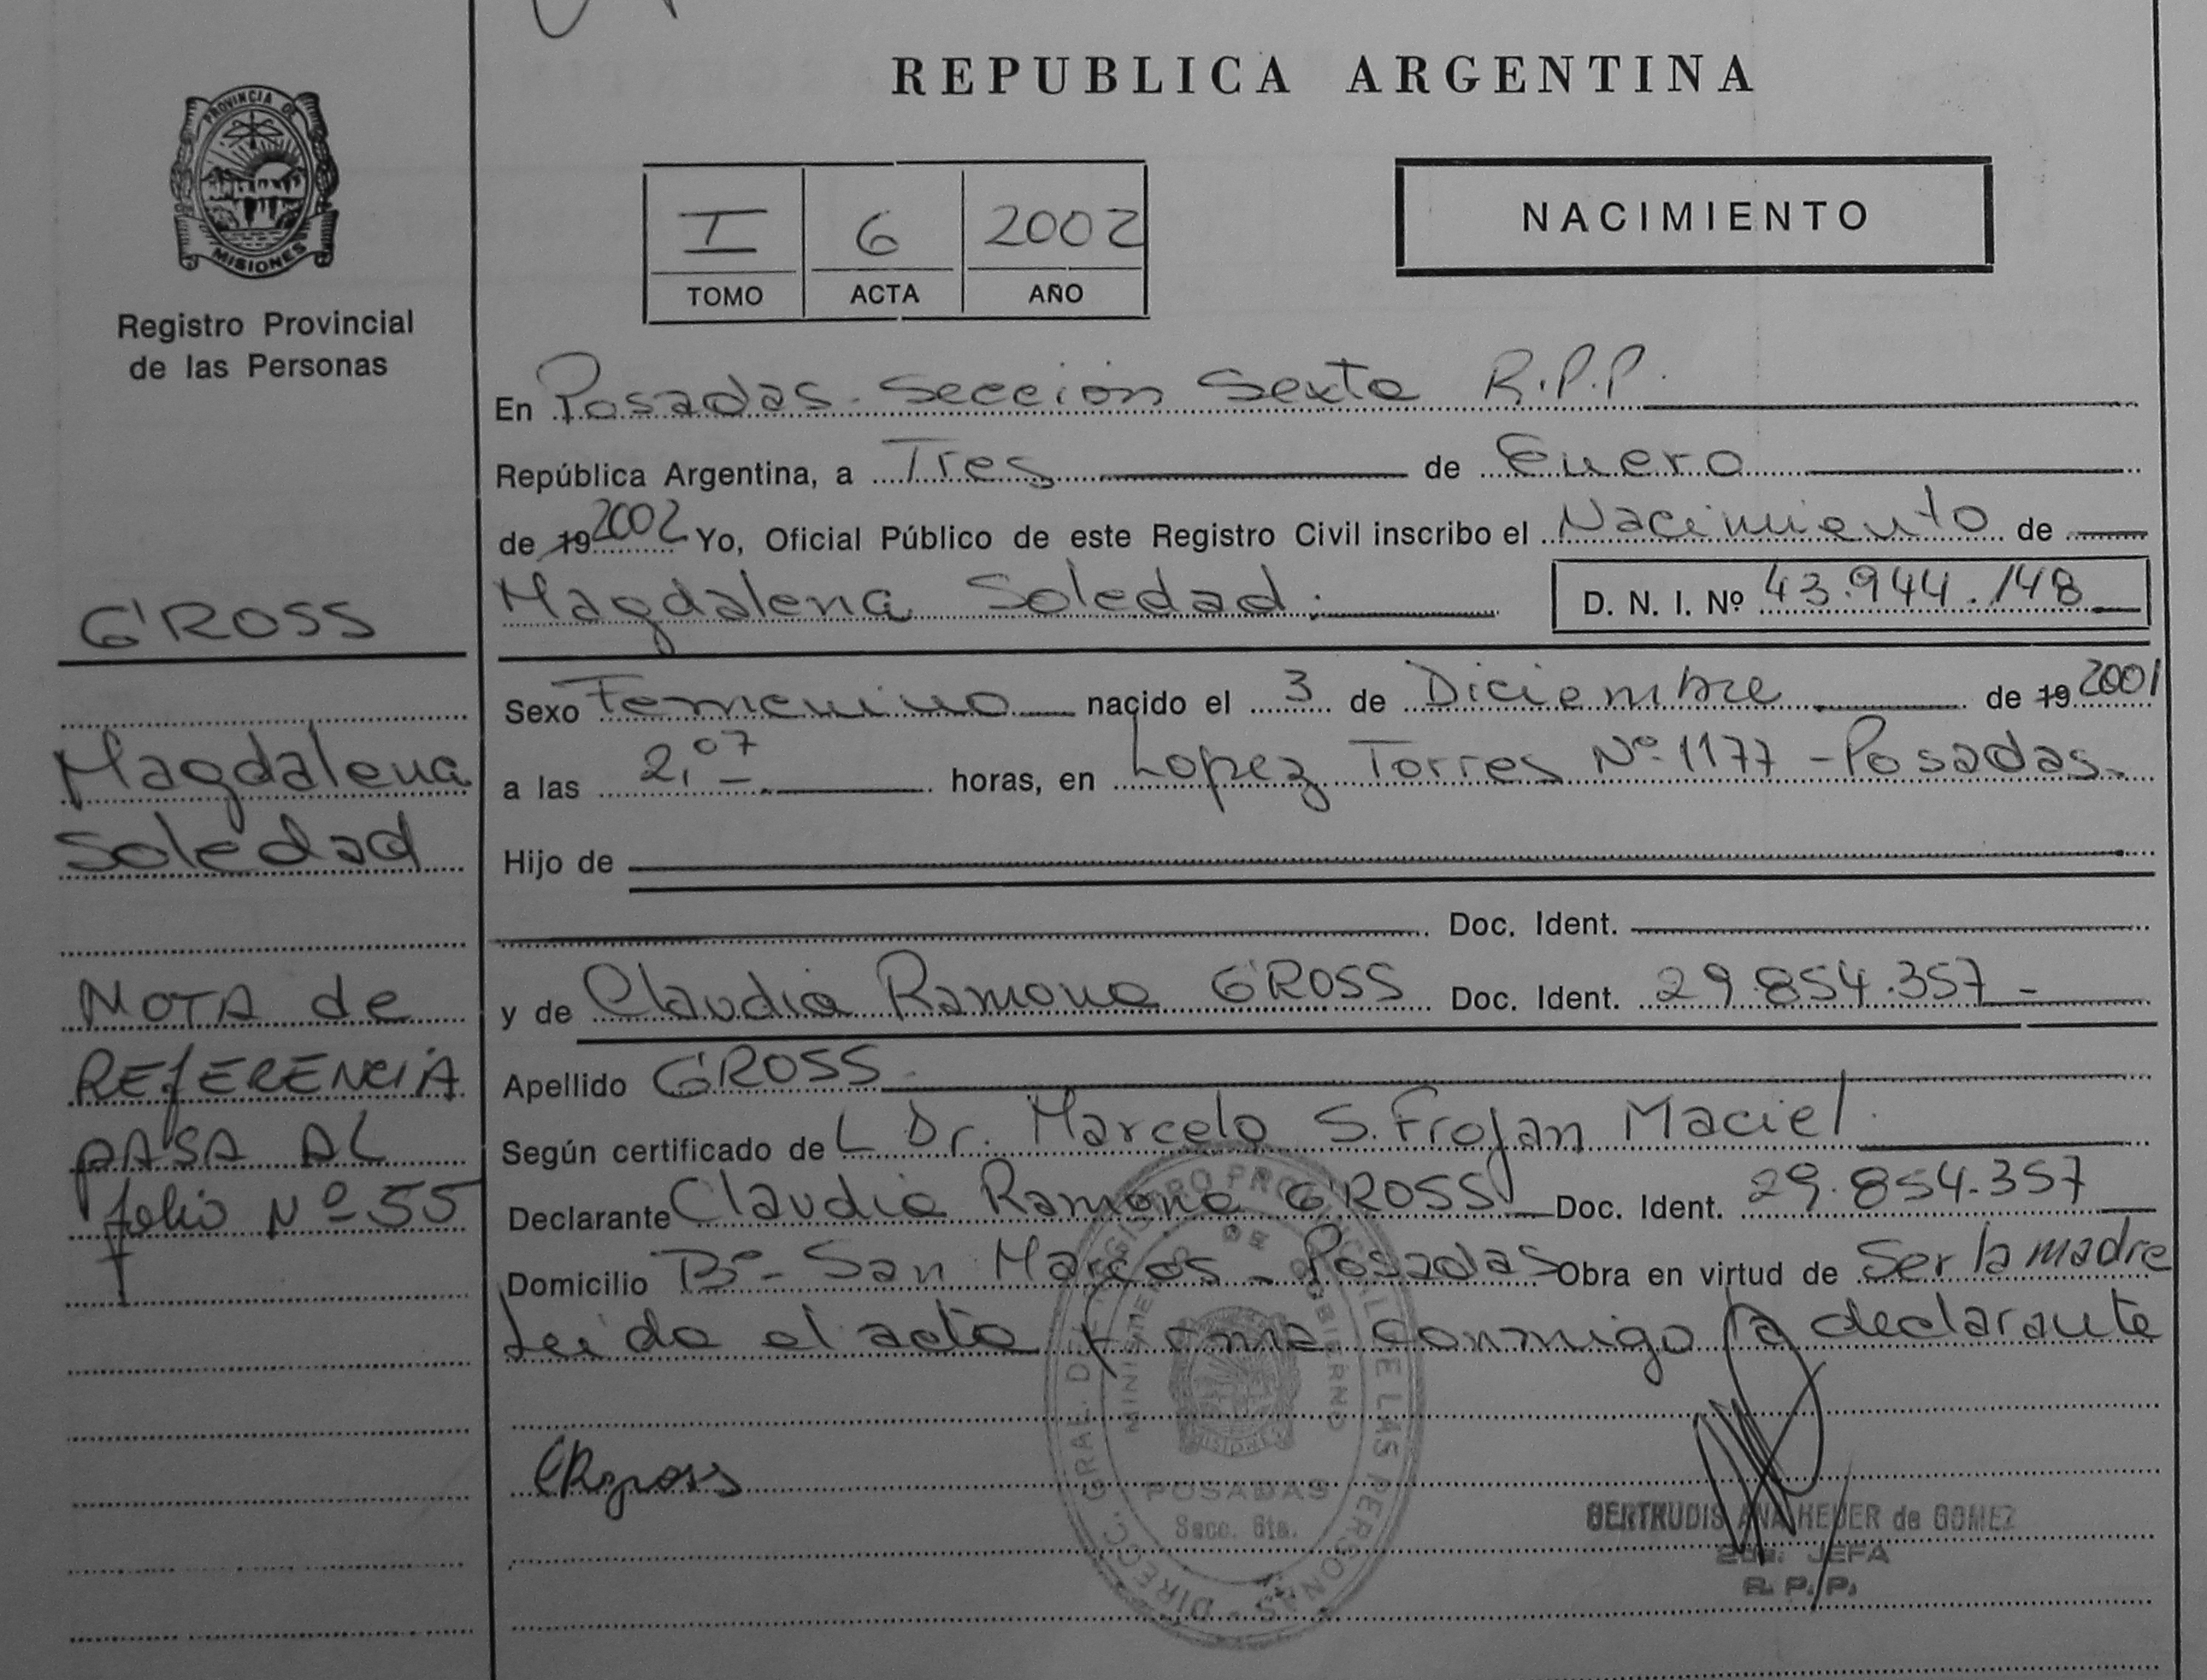 REPUBLICA ARGENTINA
PROVINCIA DE
MISIONES
Registro Provincial
de las Personas
I 6 2002
TOMO ACTA AÑO
NACIMIENTO
En Posadas. Sección Sexta R.P.P.
República Argentina, a Tres de Enero
de 19 2002 Yo, Oficial Público de este Registro Civil inscribo el Nacimiento de
Magdalena Soledad.
D. N. I. Nº 43.944.148
Sexo Femenino nacido el 3 de Diciembre de 19 2001
a las 2,07 horas, en Lopez Torres Nº 1177 - Posadas.
Hijo de
Doc. Ident.
y de Claudia Ramona GROSS Doc. Ident. 29.854.357
Apellido GROSS
Según certificado de L Dr. Marcelo S. Frojan Maciel.
Declarante Claudia Ramona GROSS Doc. Ident. 29.854.357
Domicilio Bº San Marcos - Posadas Obra en virtud de Ser la madre
Leido el acta firma conmigo la declarante
GROSS
Magdalena
Soledad
NOTA de
REFERENCIA
PASA AL
folio Nº 55
CRgross
DIRECC. GRAL. DEL REGISTRO PROVINCIAL DE LAS PERSONAS
MINISTERIO DE GOBIERNO
MISIONES
POSADAS
Secc. 6ta.
GERTRUDIS ANA HEUER de GOMEZ
2da. JEFA
R. P. P.